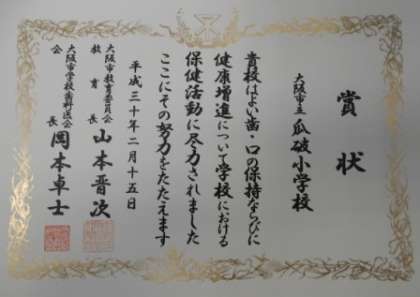 賞状
大阪市立 瓜破小学校
貴校はよい歯・口の保持ならびに
健康増進について学校における
保健活動に尽力されました
ここにその努力をたたえます
平成三十年二月十五日
大阪市教育委員会
教育長 山本晋次
大阪市学校歯科医会
会長 岡本卓士